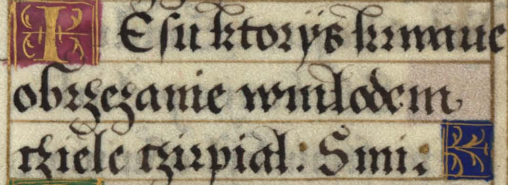 IEsu ktorys krwawe
obrzezanie wmlodem
cziele czirpial. Smi. K